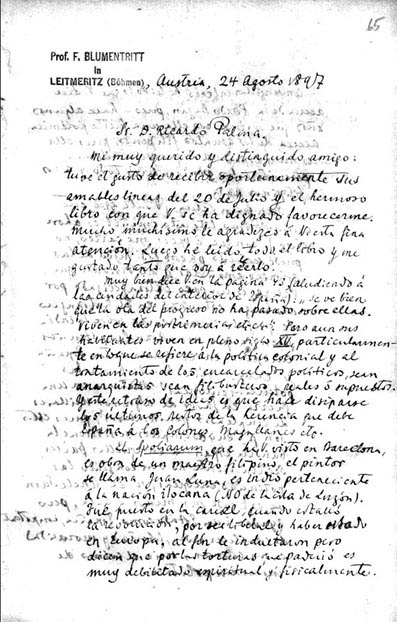 65
Prof. F. BLUMENTRITT
in
LEITMERITZ (Böhmen), Austria, 24 Agosto 1897
Sr. D. Ricardo Palma.
Mi muy querido y distinguido amigo:
tuve el gusto de recibir oportunamente sus
amables lineas del 20 de Julio y el hermoso
libro con que V. se ha dignado favorecerme.
Mucho muchisimo le agradezco á V. esta fina
atención. Luego he leido todo el libro y me
gustado tanto que voy á
Muy bien dice en la página 45 (aludiendo á
las ciudades del interior de España): "se ve bien
que la ola del progreso no ha pasado sobre ellas.
Viven en las postrimerias etc etc." Pero aun sus
habitantes viven en pleno siglo XV, particularmen-
te en lo que se refiere á la politica colonial y al
tratamiento de los encarcelados politicos, sean
anarquistas sean filibusteros, reales ó supuestos.
Y este retraso de ideas es que hace disiparse
los ultimos restos de la herencia que debe
España á los Colones, Magallanes etc.
El Spoliarium que ha V. visto en Barcelona,
es obra de un maestro filipino, el pintor
se llama Juan Luna, es indio perteneciente
á la nación ilocana (NO de la isla de Luzón).
Fué puesto en la carcel, cuando estalló
la revolución, por ser liberal y haber estado
en Europa, al fin le indultaron pero
dicen que por las torturas que padeció es
muy debilitado espiritual y fisicalmente.